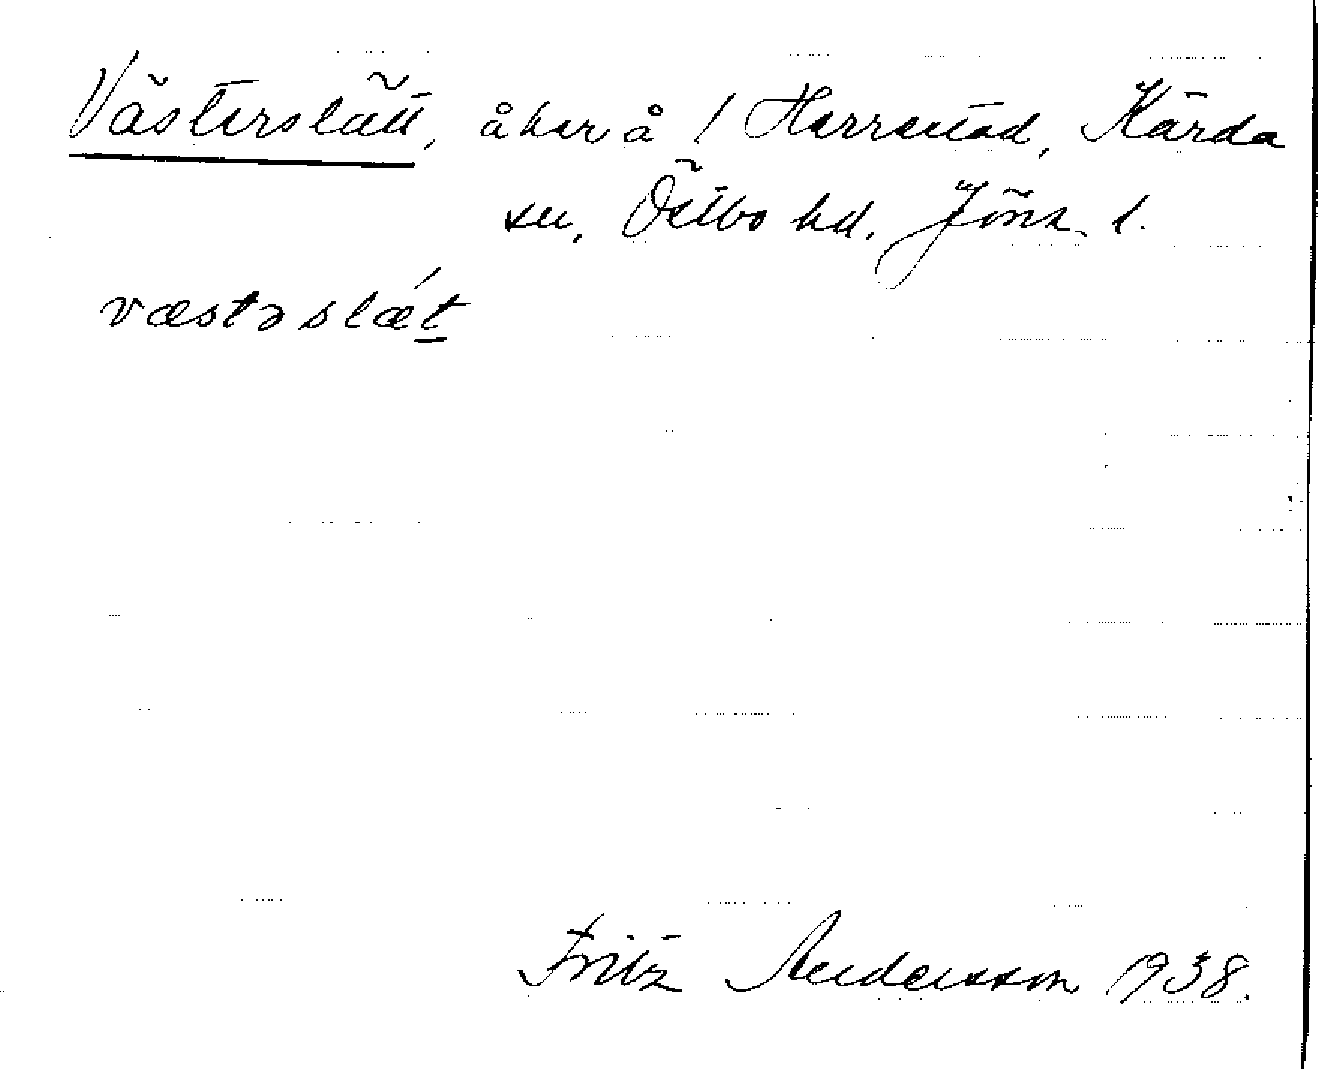 Västerslätt, åker å / Herrestad, Kärda
sn, Östbo hd, Jönk. l.
væstəslǽt
Fritz Andersson 1938.